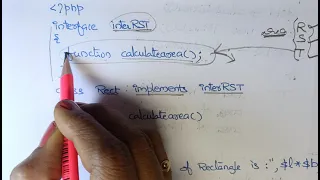 <?php
interface interRST
{
function calculatearea();
R
S
T
class Rect implements interRST
calculatearea()
of Rectangle is :", $l*$b